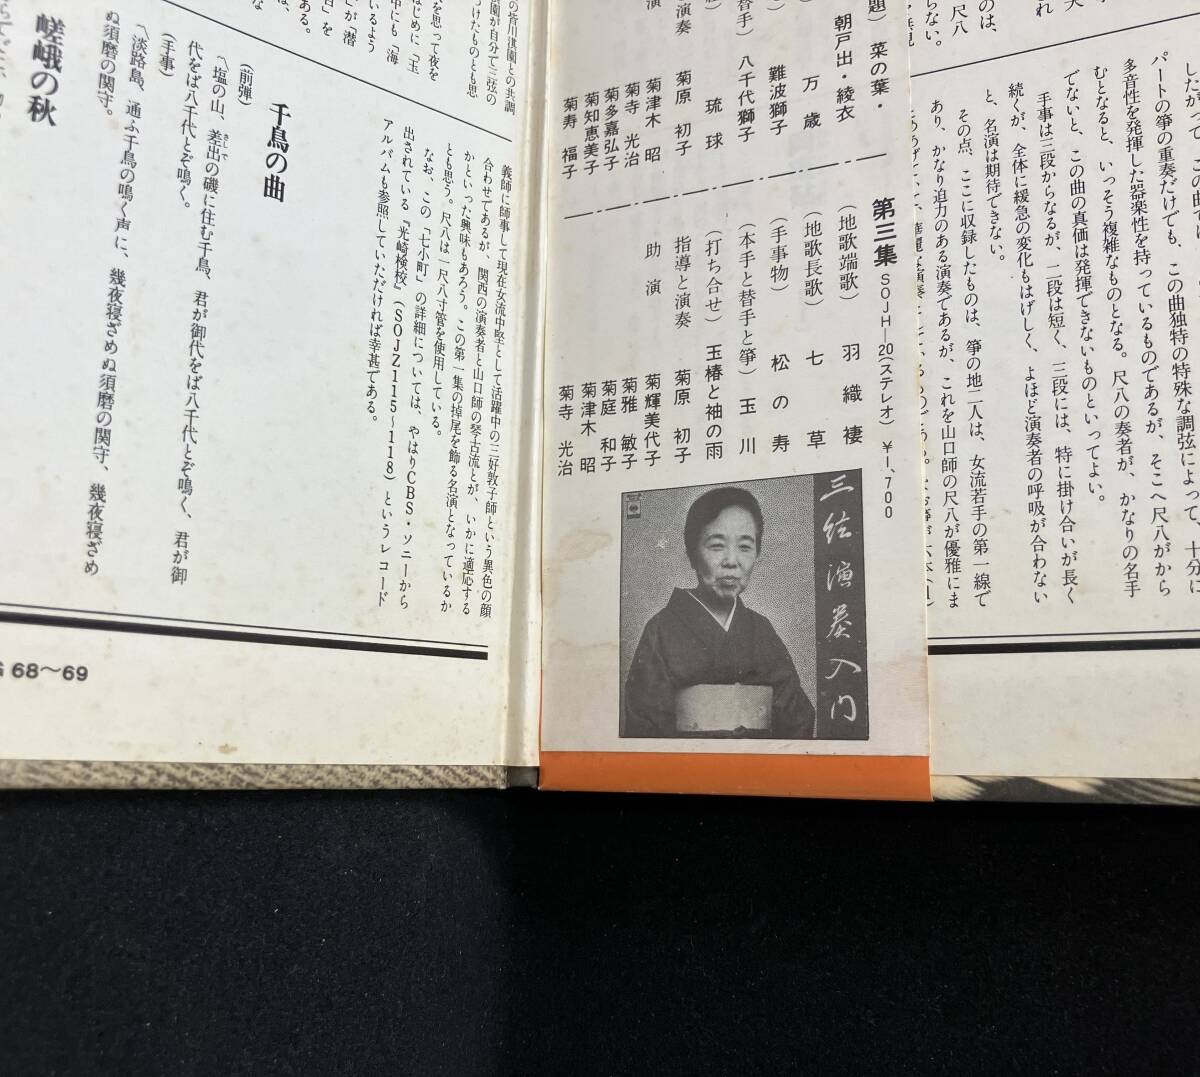 したがって、この曲は
パートの箏の重奏だけでも、この曲独特の特殊な調弦によって、十分に
多音性を発揮した器楽性を持っているものであるが、そこへ尺八がから
むとなると、いっそう複雑なものとなる。尺八の奏者が、かなりの名手
でないと、この曲の真価は発揮できないものといってよい。
手事は三段からなるが、二段は短く、三段には、特に掛け合いが長く
続くが、全体に緩急の変化もはげしく、よほど演奏者の呼吸が合わない
と、名演は期待できない。
その点、ここに収録したものは、箏の地二人は、女流若手の第一線で
あり、かなり迫力のある演奏であるが、これを山口師の尺八が優雅にま
菜の葉・
朝戸出・綾衣
万歳
難波獅子
(替手) 八千代獅子
琉球
菊原 初子
演奏
菊津木 昭
菊寺 光治
菊多嘉弘子
菊知恵美子
菊寿 福子
第三集 SOJH—20(ステレオ) ¥1,700
(地歌端歌) 羽織褄
(地歌長歌) 七草
(手事物) 松の寿
(本手と替手と箏) 玉川
(打ち合せ) 玉椿と袖の雨
指導と演奏 菊原 初子
助演 菊輝美代子
菊雅 敏子
菊庭 和子
菊津木 昭
菊寺 光治
三弦演奏入門
義師に師事して現在女流中堅として活躍中の三好敦子師という異色の顔
合わせてあるが、関西の演奏者と山口師の琴古流とが、いかに適応する
かといった興味もあろう。この第一集の掉尾を飾る名演となっているか
とも思う。尺八は一尺八寸管を使用している。
なお、この「七小町」の詳細については、やはりCBS・ソニーから
出されている『光崎検校』(SOJZ115〜118)というレコード
アルバムも参照していただければ幸甚である。
千鳥の曲
(前弾)
〽塩の山、差出の磯に住む千鳥、君が御代をば八千代とぞ鳴く、君が御
さしで
代をば八千代とぞ鳴く。
(手事)
〽淡路島、通ふ千鳥の鳴く声に、幾夜寝ざめぬ須磨の関守、幾夜寝ざめ
ぬ須磨の関守。
嵯峨の秋
G 68〜69